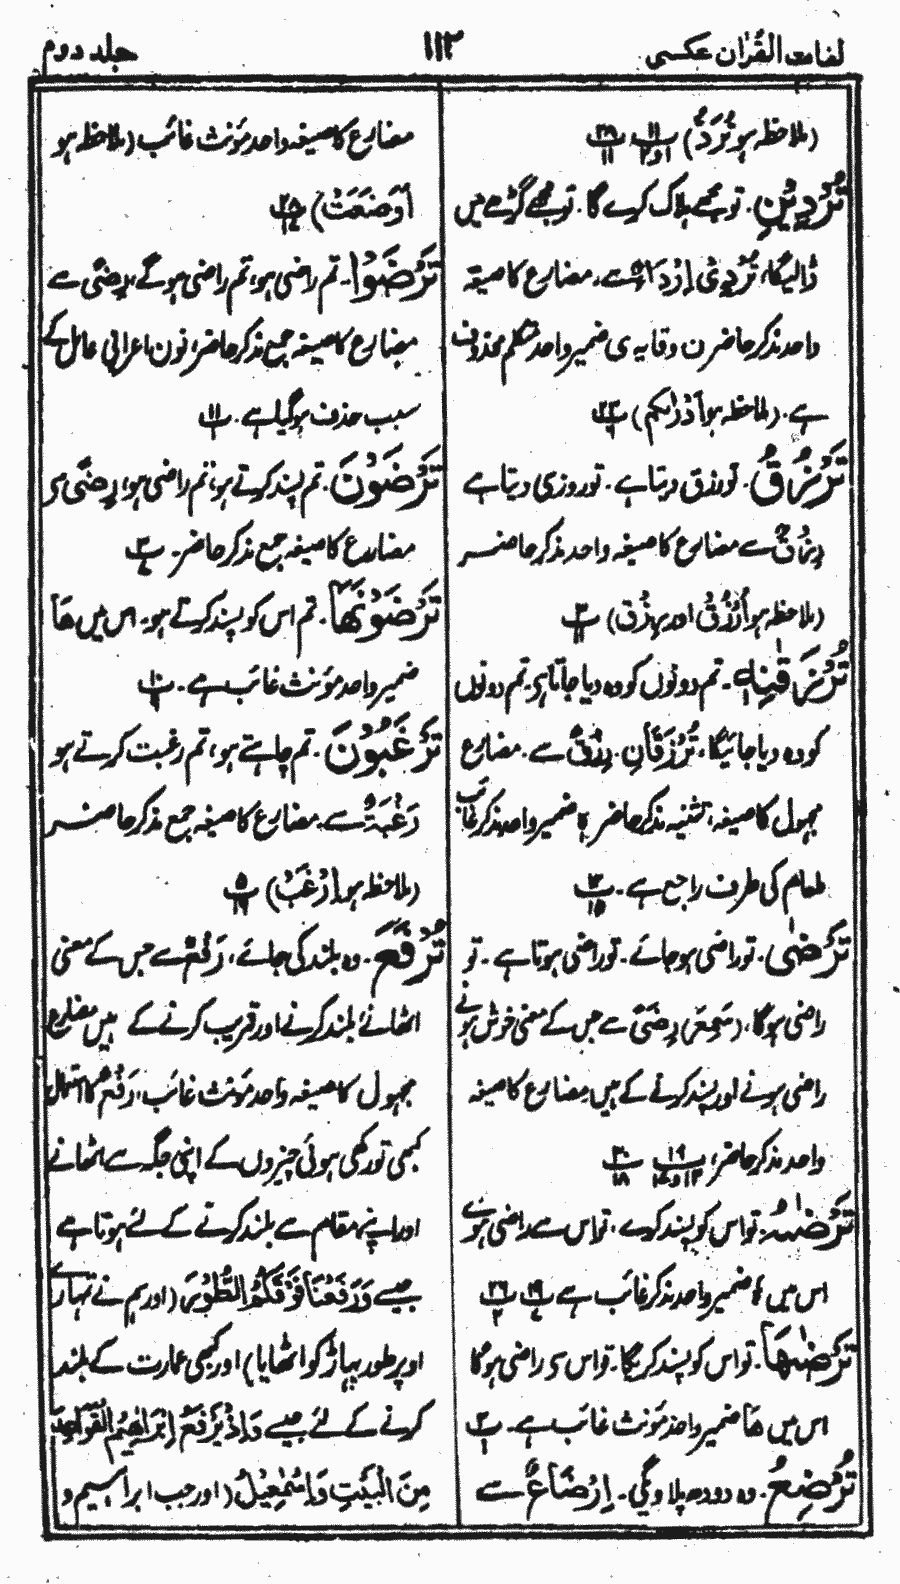 لغات القرآن عکسی ۱۱۳ جلد دوم
(ملاحظہ ہو تُرَدُّ) ۱۱ ۲۸
تُرْدِیْنِ. تو مجھے ہلاک کرے گا. تو مجھے گڑھے میں
ڈالیگا، تُرْدِیْ اِرْدَاءٌ سے، مضارع کا صیغہ
واحد مذکر حاضر ن وقایہ ی ضمیر واحد متکلم محذوف
ہے. (ملاحظہ ہو اَرْدٰىكُمْ) ۲۳
تَرْزُقُ. تو رزق دیتا ہے. تو روزی دیتا ہے
رِزْقٌ سے مضارع کا صیغہ واحد مذکر حاضر
(ملاحظہ ہو اُرْزُقْ اور یرزق) ۳ ۱۱
تُرْزَقٰنِهٖ. تم دونوں کو وہ دیا جاتا ہے. تم دونوں
کو وہ دیا جائیگا. تُرْزَقَانِ. رِزْقٌ سے. مضارع
مجہول کا صیغہ، تثنیہ مذکر حاضر ہٖ ضمیر واحد مذکر غائب
طعام کی طرف راجع ہے. ۱۲ ۱۵
تَرْضٰى. تو راضی ہو جائے. تو راضی ہوتا ہے. تو
راضی ہوگا. (سَمِعَ) رِضًى سے جس کے معنی خوش ہونے
راضی ہونے اور پسند کرنے کے ہیں مضارع کا صیغہ
واحد مذکر حاضر، ۱۹ ۳۰ ۱۸
تَرْضٰهُ. تو اس کو پسند کرے، تو اس سے راضی ہوئے
اس میں ہٗ ضمیر واحد مذکر غائب ہے ۱۹ ۲۶ ۲
تَرْضٰهَا. تو اس کو پسند کریگا. تو اس سے راضی ہوگا
اس میں هَا ضمیر واحد مؤنث غائب ہے. ۲ ۱
تُرْضِعُ. وہ دودھ پلاوگی. اِرْضَاعٌ سے
مضارع کا صیغہ واحد مؤنث غائب (ملاحظہ ہو
اَرْضَعَتْ)
تَرْضَوْا. تم راضی ہو، تم راضی ہوگے، رِضًى سے
مضارع کا صیغہ جمع مذکر حاضر، نون اعرابی عامل کے
سبب حذف ہوگیا ہے. ۱۱
تَرْضَوْنَ. تم پسند کرتے ہو، تم راضی ہو، رِضًى سے
مضارع کا صیغہ جمع مذکر حاضر. ۳
تَرْضَوْنَهَا. تم اس کو پسند کرتے ہو. اس میں هَا
ضمیر واحد مؤنث غائب ہے. ۱۰ ۹
تَرْغَبُوْنَ. تم چاہتے ہو، تم رغبت کرتے ہو
رَغْبَةٌ سے. مضارع کا صیغہ جمع مذکر حاضر
(ملاحظہ ہو اِرْغَبْ) ۵ ۱۶
تُرْفَعَ. وہ بلند کی جائے، رَفْعٌ سے جس کے معنی
اٹھانے، بلند کرنے اور قریب کرنے کے ہیں مضارع
مجہول کا صیغہ واحد مؤنث غائب، رَفْعٌ کا استعمال
کبھی تو رکھی ہوئی چیزوں کے اپنی جگہ سے اٹھانے
اور اپنے مقام سے بلند کرنے کے لئے ہوتا ہے
جیسے وَرَفَعْنَا فَوْقَكُمُ الطُّوْرَ (اور ہم نے تمہارے
اوپر طور پہاڑ کو اٹھایا) اور کبھی عمارت کے بلند
کرنے کے لئے جیسے وَاِذْ يَرْفَعُ اِبْرَاهِيْمُ الْقَوَاعِدَ
مِنَ الْبَيْتِ وَاِسْمٰعِيْلُ (اور جب ابراہیم و